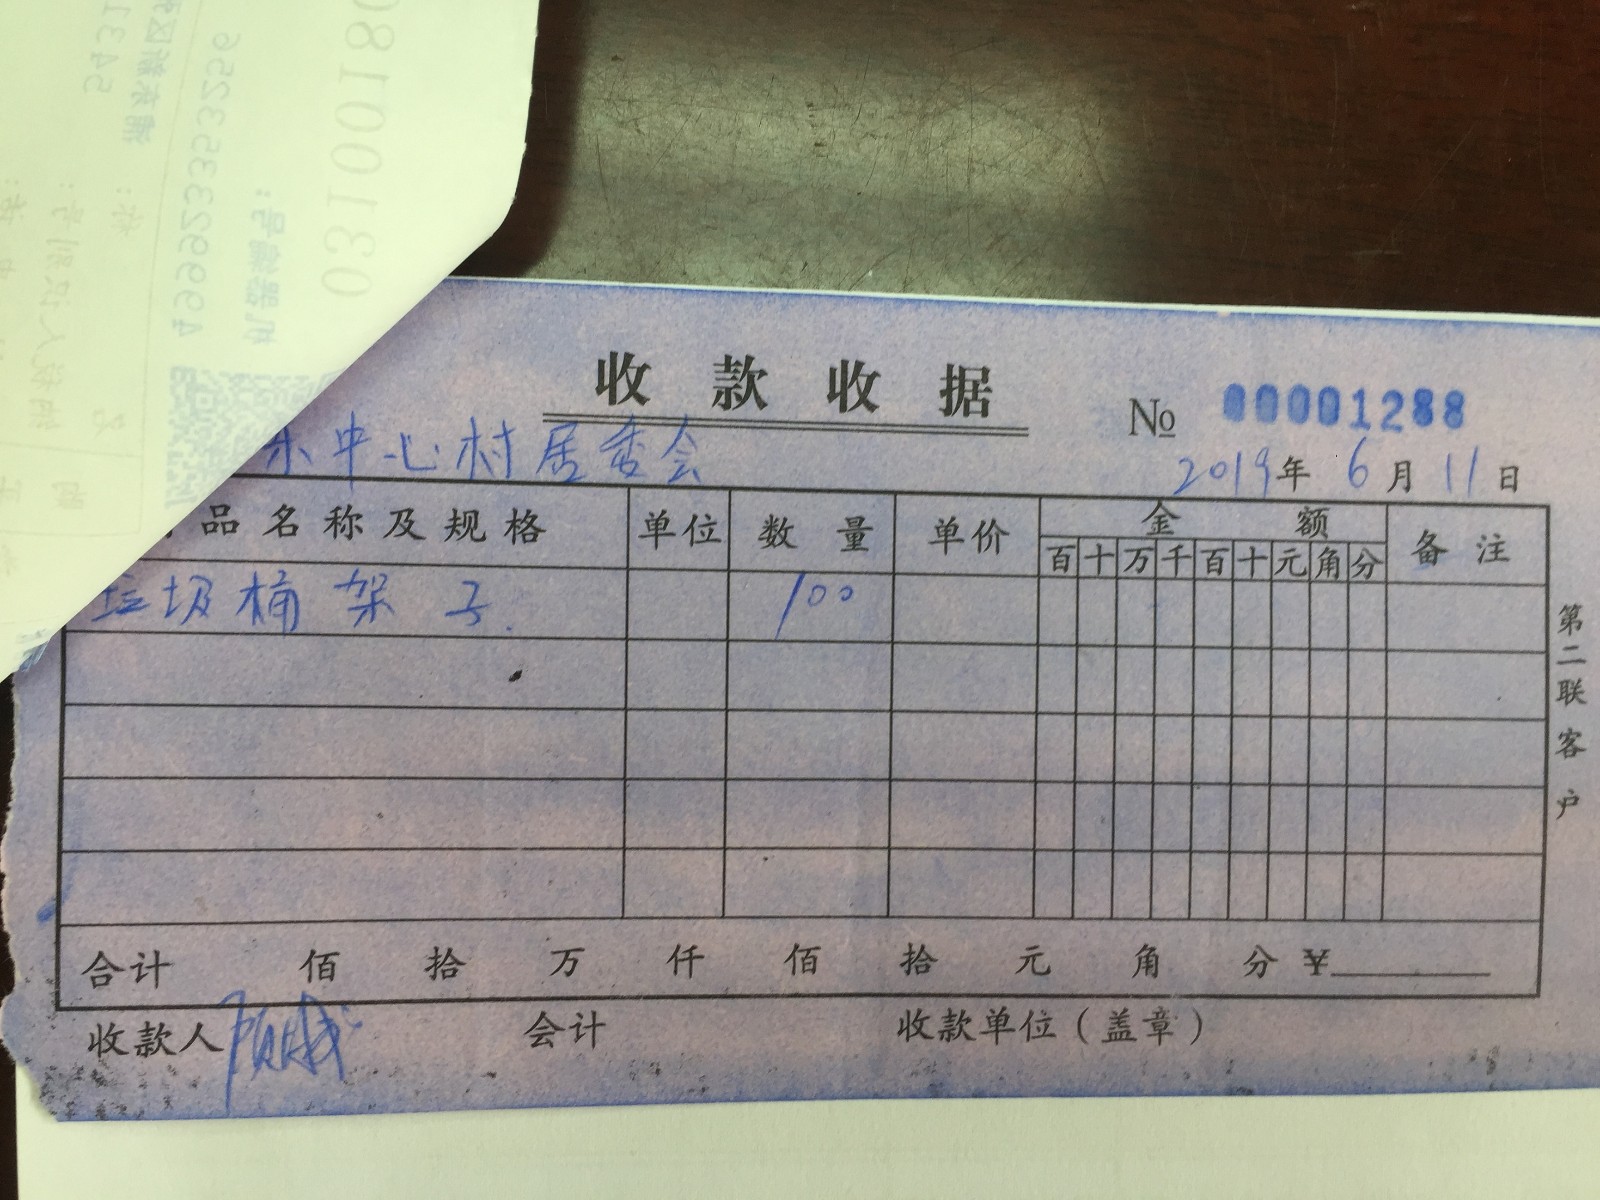 收款收据
No 00001288
中心村居委会
2019年6月11日
品名称及规格 单位 数量 单价 金额 备注
百十万千百十元角分
垃圾桶架子. 100
第二联客户
合计 佰 拾 万 仟 佰 拾 元 角 分 ¥
收款人 会计 收款单位(盖章)
03100180
机器编号:
499929353256